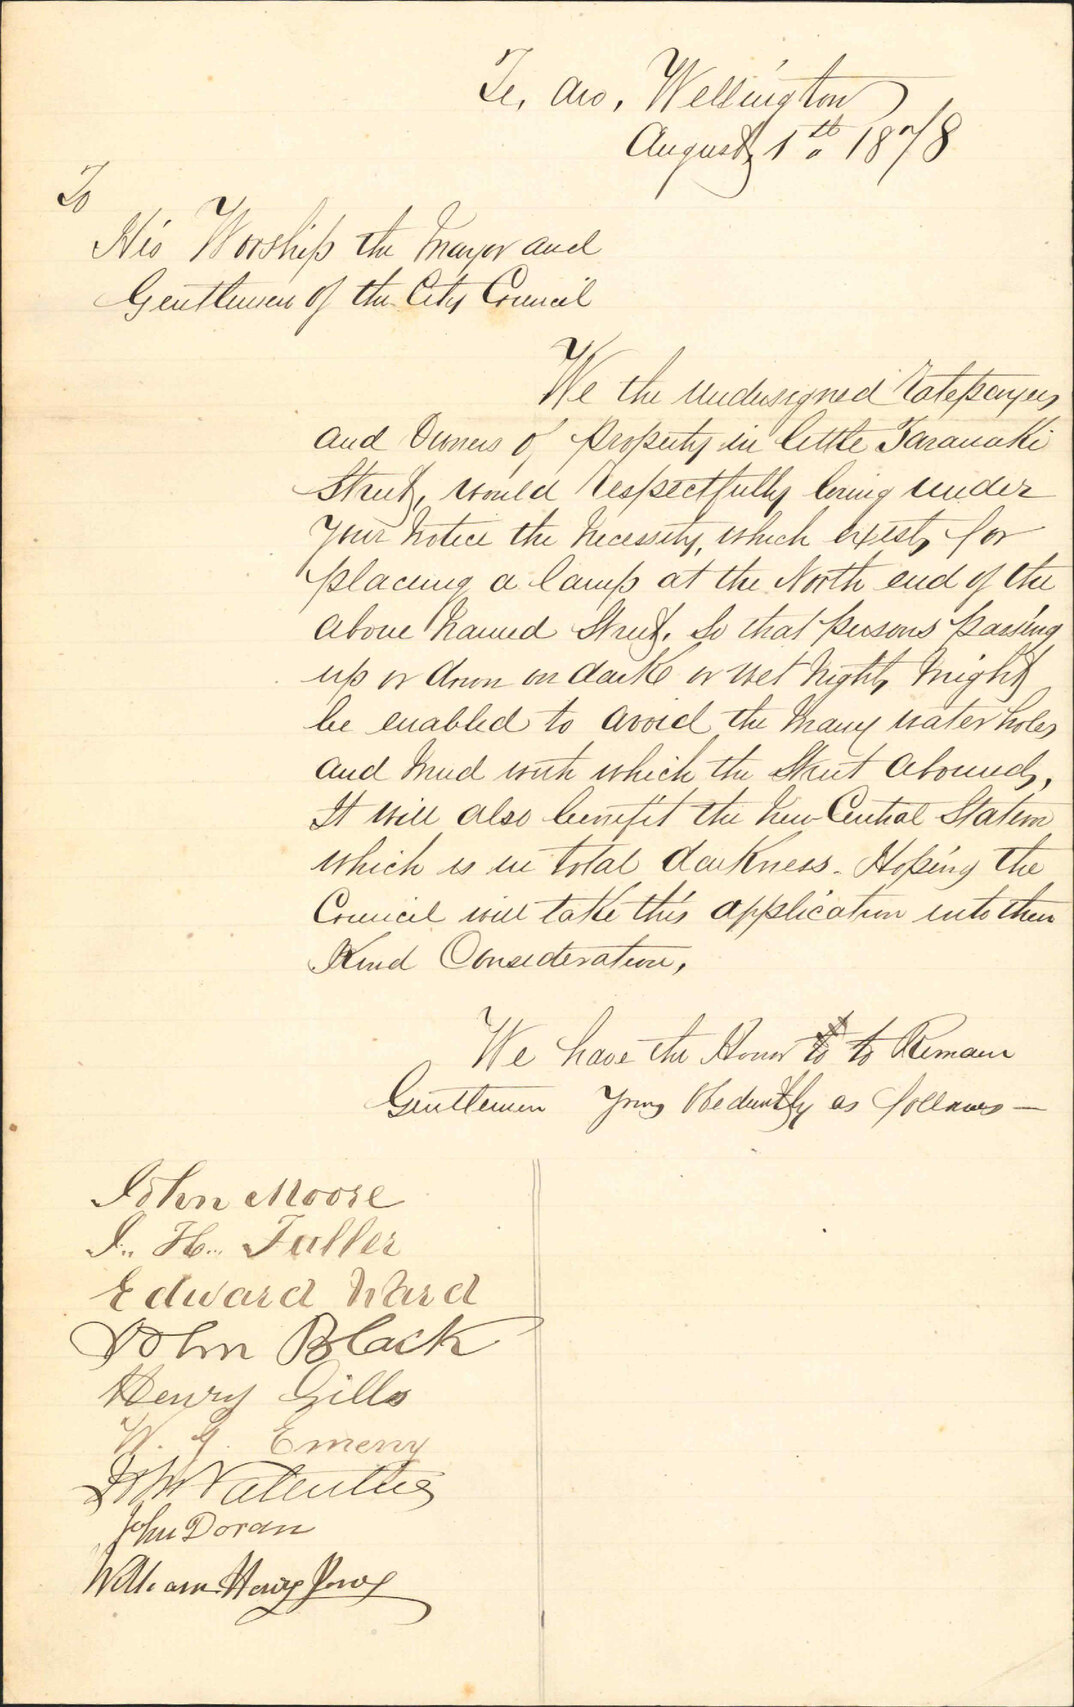 Te, Aro, Wellington
August 1th 1878
To
His Worship the Mayor and
Gentlemen of the City Council
We the undersigned Ratepayers
and Owners of property in little Taranaki
Street, would respectfully bring under
your notice the necessity, which exists, for
placing a lamp at the North end of the
above named Street. So that persons passing
up or down on dark or wet nights, might
be enabled to avoid the many water holes
and mud with which the Street abounds,
It will also benefit the New Central Station
which is in total darkness. Hoping the
Council will take this application into their
Kind Consideration,
We have the Honor to to Remain
Gentlemen Yours Obediently as follows—
John Moore
J. H. Fuller
Edward Ward
John Black
Henry Gills
W. G. Emeny
John Valentine
John Doran
William Henry Jones